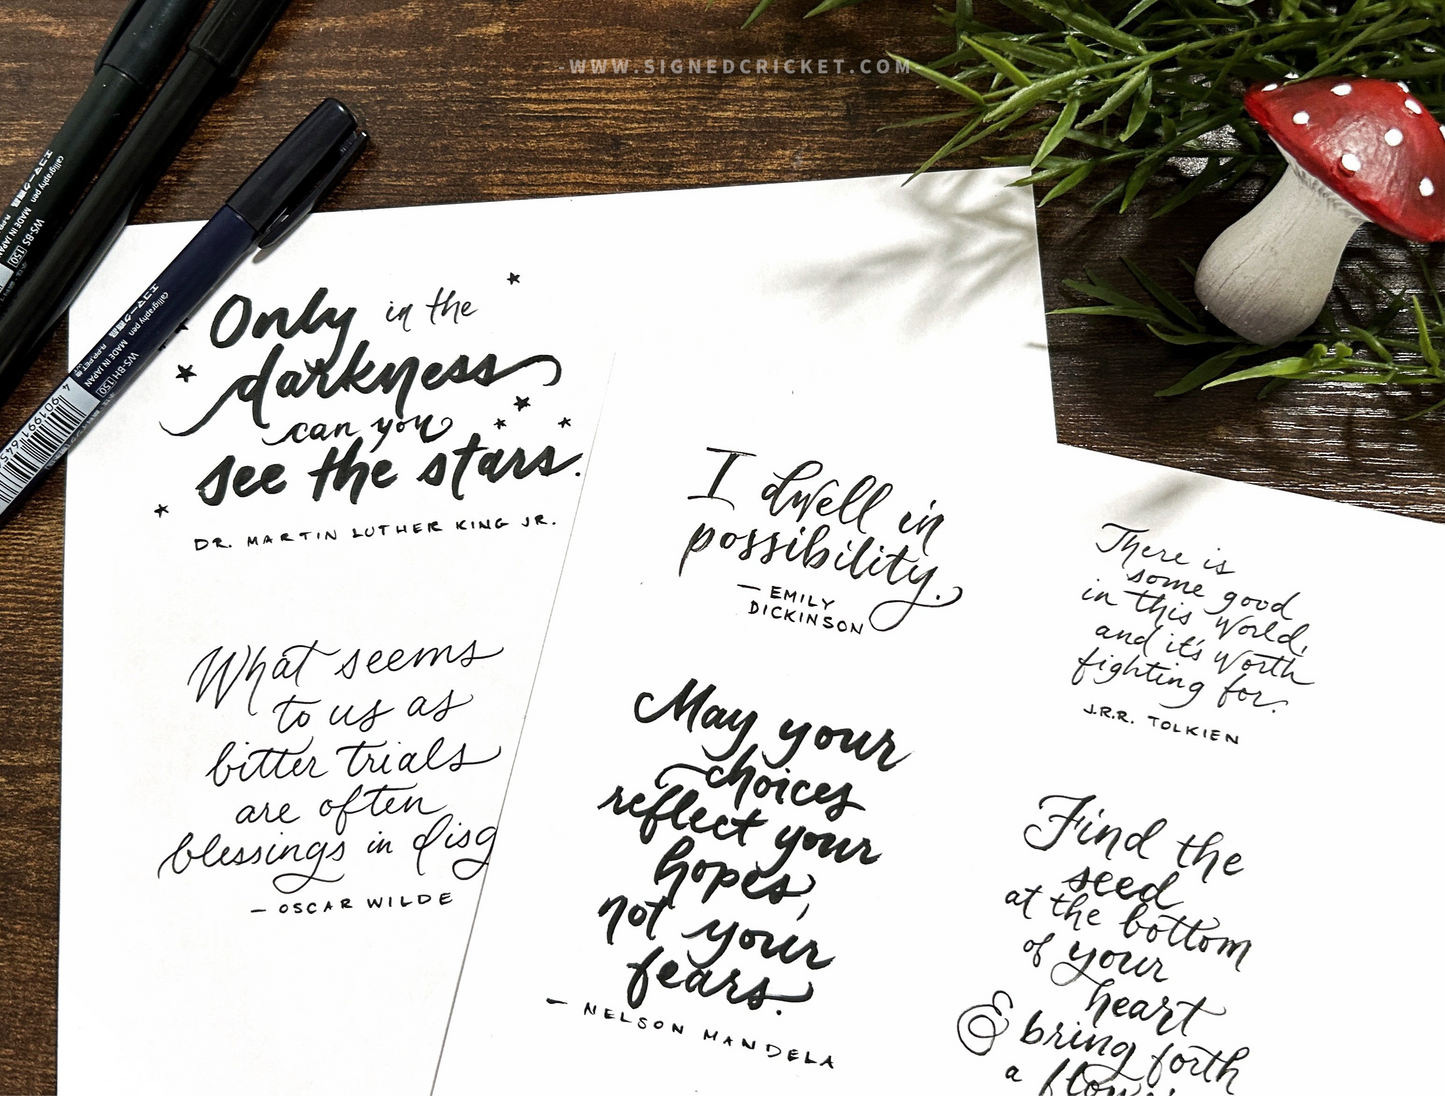 WWW.SIGNEDCRICKET.COM
calligraphy pen
MADE IN JAPAN
WS-BS 150
calligraphy pen
MADE IN JAPAN
WS-BH 150
4 901991 645
Only in the
darkness
can you
see the stars.
DR. MARTIN LUTHER KING JR.
What seems
to us as
bitter trials
are often
blessings in disg
— OSCAR WILDE
I dwell in
possibility.
— EMILY
DICKINSON
May your
choices
reflect your
hopes,
not your
fears.
— NELSON MANDELA
There is
some good
in this world,
and it's worth
fighting for.
J.R.R. TOLKIEN
Find the
seed
at the bottom
of your
heart
& bring forth
a